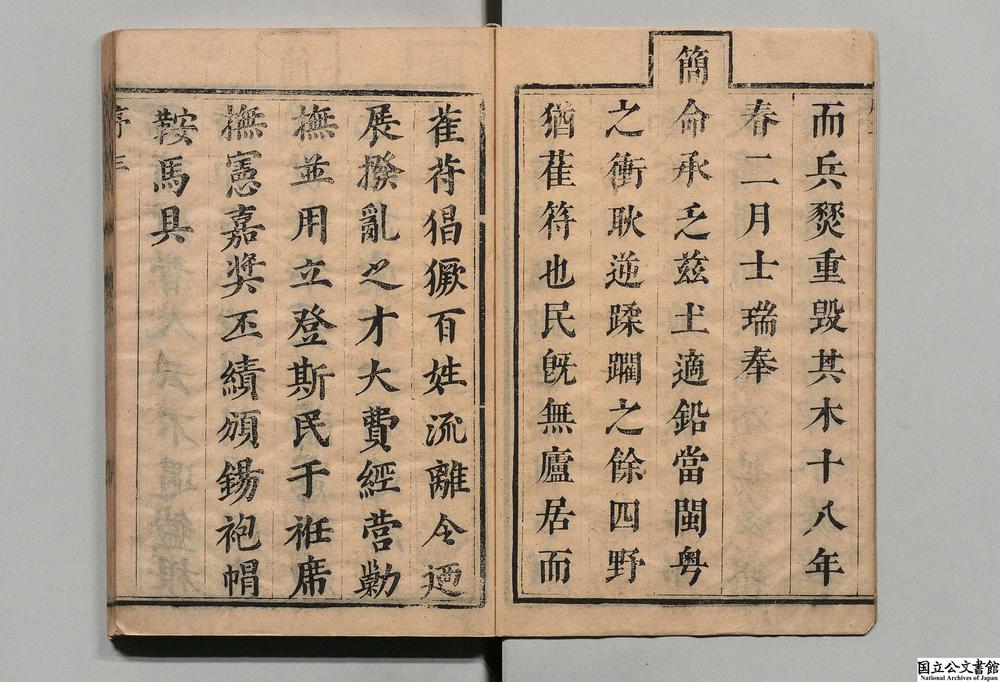 而兵燹重毀其木十八年
春二月士瑞奉
簡命承乏兹土適鉛當閩粤
之衝耿逆蹂躙之餘四野
猶萑符也民旣無廬居而
萑苻猖獗百姓流離令廼
展撥亂之才大費經營勦
撫並用立登斯民于袵席
撫憲嘉奬丕績頒錫袍帽
鞍馬具
序
国立公文書館
National Archives of Japan